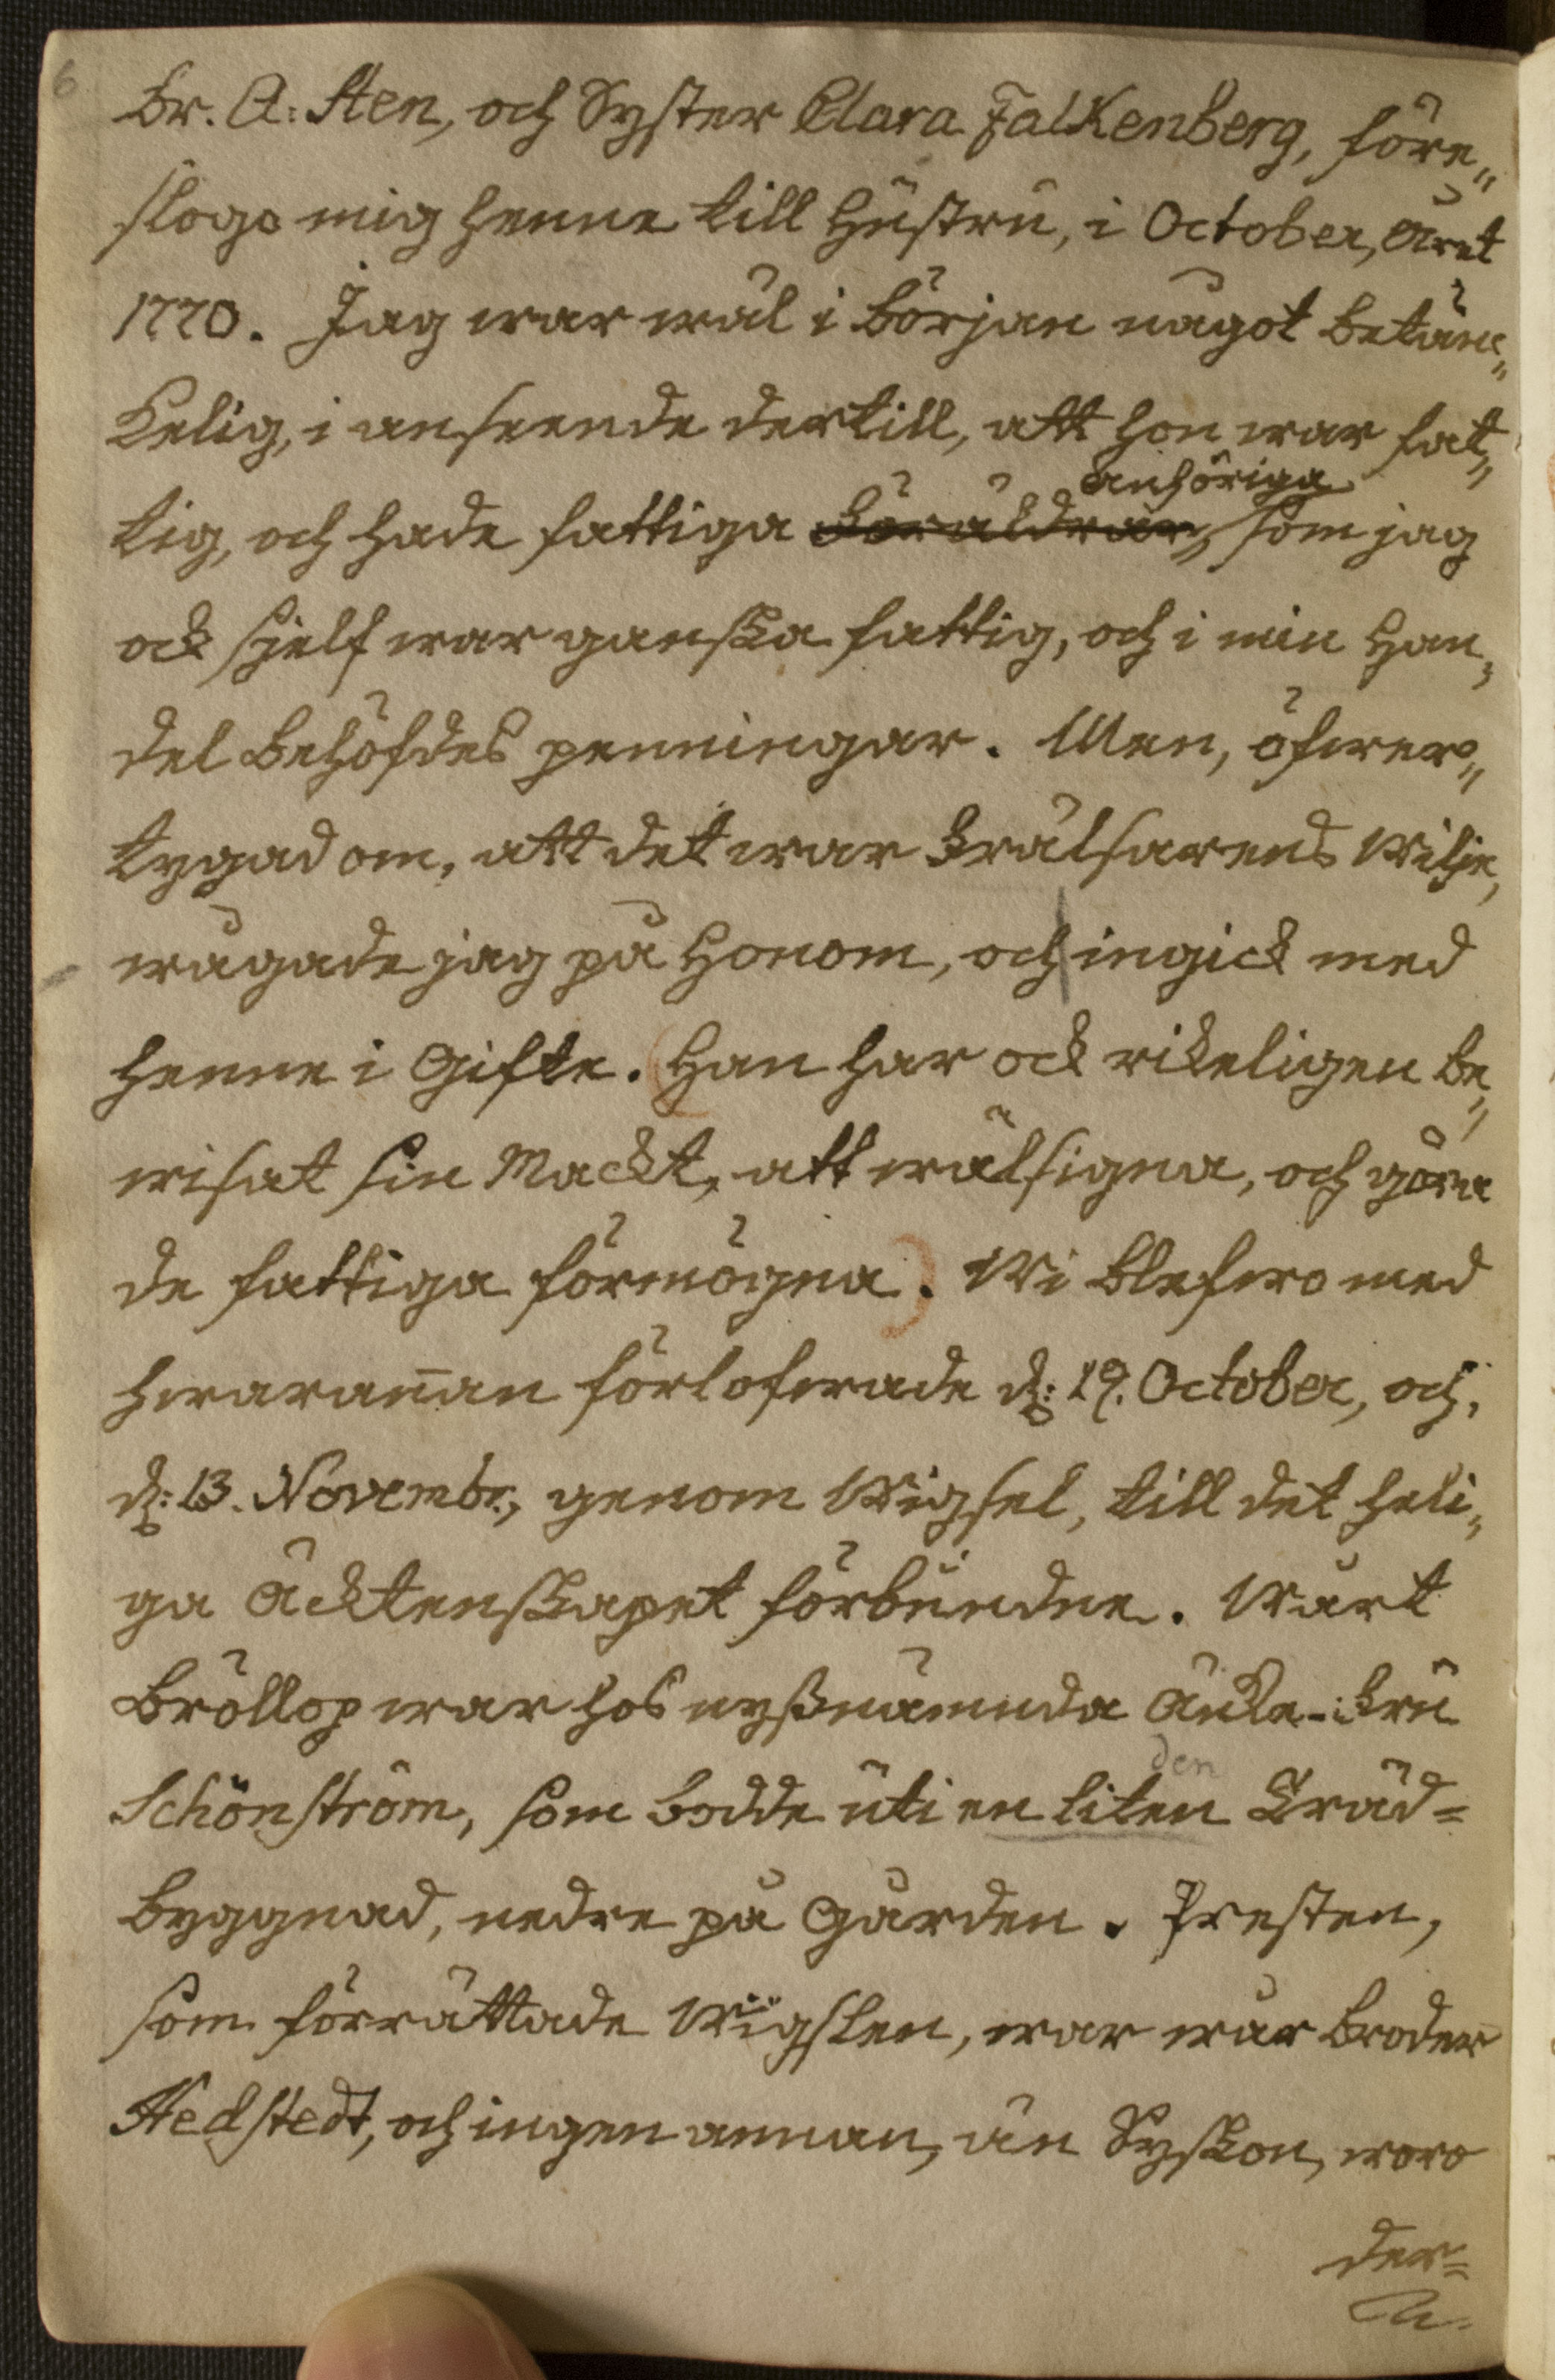 6
Br. A: Sten, och Syster Clara Falkenberg, före„
slogo mig henne till Hustru, i October, Året
1770. Jag war wäl i början något betän„
kelig, i anseende dertill, att hon war fat„
anhöriga
tig, och hade fattiga Föräldrar, som jag
ock sjelf war ganska fattig, och i min Han„
del behöfdes penningar. Men, öfwer„
tygad om, att det war Frälsarens Wilje,
wågade jag på Honom, och ingick med
henne i Gifte. (Han har ock rikeligen be„
wisat sin Mackt, att wälsigna, och göra
de fattiga förmögna). Wi blefwo med
hwarañan förlofwade d: 19. October, och,
d: 13. Novembr, genom Wigsel, till det heli„
ga Äcktenskapet förbundne. Wårt
Bröllop war hos nyßnämnda Änke-Fru
den
Schönström, som bodde uti en liten Träd=
byggnad, nedre på Gården. Presten,
som förrättade Wigslen, war wår Broder
Hedstedt, och ingen annan, än Syskon, woro
der=